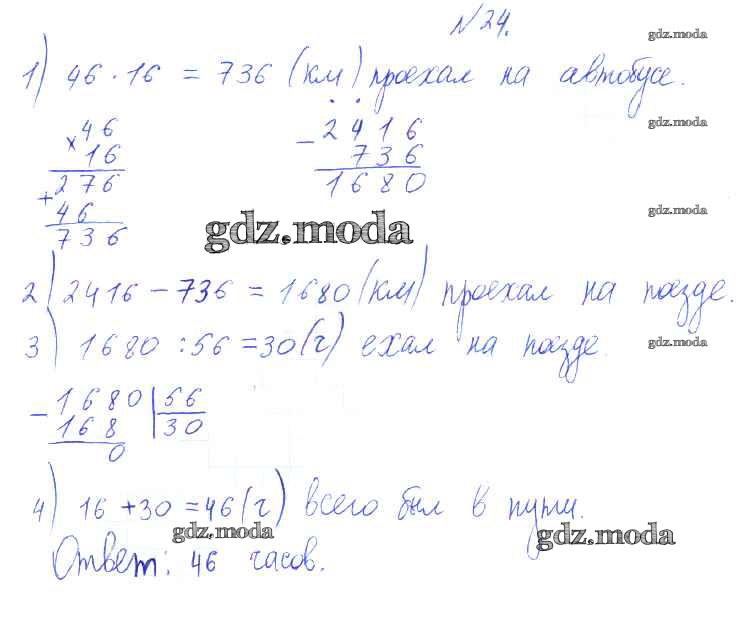 №24.
gdz.moda
1) 46 · 16 = 736 (км) проехал на автобусе.
gdz.moda
× 46
16
276
+ 46
736
− 2416
736
1680
gdz.moda
gdz.moda
2) 2416 − 736 = 1680 (км) проехал на поезде.
3) 1680 : 56 = 30 (ч) ехал на поезде.
gdz.moda
− 1680 | 56
168 | 30
0
4) 16 + 30 = 46 (ч) всего был в пути.
gdz.moda
gdz.moda
Ответ: 46 часов.